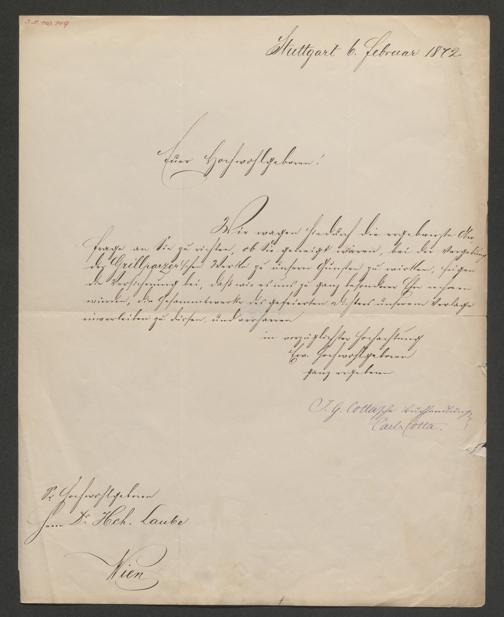 Stuttgart 6. Februar 1872.
Euer Hochwohlgeboren!
Wir wagen hiedurch die ergebenste An-
frage an Sie zu richten, ob Sie geneigt wären, bei der Vergebung
der Grillparzer'schen Werke zu unsern Gunsten zu wirken, fügen
die Versicherung bei, daß wir es uns zu ganz besonderer Ehre rechnen
würden, die Gesammtwerke des gefeierten Dichters unserem Verlage
einverleiben zu dürfen, und verharren
in vorzüglichster Hochachtung
Ew. Hochwohlgeboren
ganz ergebene
J. G. Cotta'sche Buchhandlung
Carl Cotta.
Sr. Hochwohlgeboren
Herrn Dr. Hch. Laube
Wien